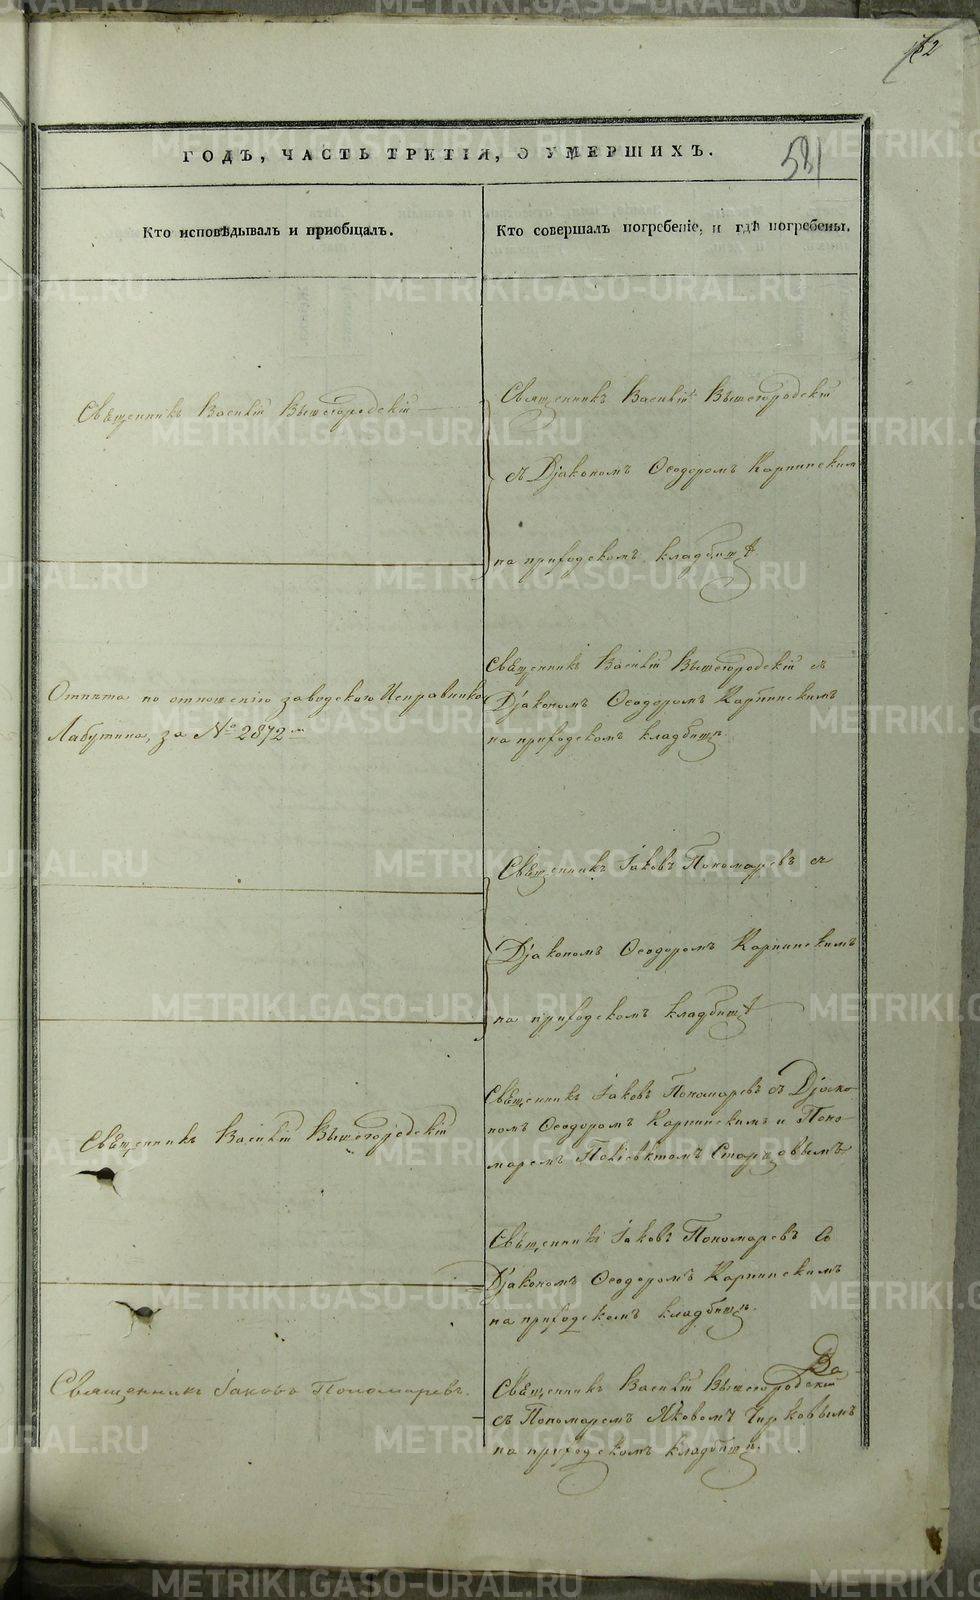 582
581
ГОДЪ, ЧАСТЬ ТРЕТІЯ, О УМЕРШИХЪ.
Кто исповѣдывалъ и пріобщалъ.
Кто совершалъ погребеніе, и гдѣ погребены.
Священникъ Василій Вышегородскій
Священникъ Василій Вышегородскій
съ Діакономъ Ѳеодоромъ Карпинскимъ
на приходскомъ кладбищѣ
Отпѣта по отношенію заводскаго Исправника
Лабутина, за № 2872
Священникъ Василій Вышегородскій съ
Діакономъ Ѳеодоромъ Карпинскимъ
на приходскомъ кладбищѣ
Священникъ Іаковъ Пономаревъ съ
Діакономъ Ѳеодоромъ Карпинскимъ
на приходскомъ кладбищѣ
Священникъ Василій Вышегородскій
Священникъ Іаковъ Пономаревъ съ Діако-
номъ Ѳеодоромъ Карпинскимъ и Поно-
маремъ Поліевктомъ Старцовымъ
Священникъ Іаковъ Пономаревъ съ
Діакономъ Ѳеодоромъ Карпинскимъ
на приходскомъ кладбищѣ
Священникъ Іаковъ Пономаревъ.
Священникъ Василій Вышегородскій
съ Пономаремъ Яковомъ Чирковымъ
на приходскомъ кладбищѣ
METRIKI.GASO-URAL.RU